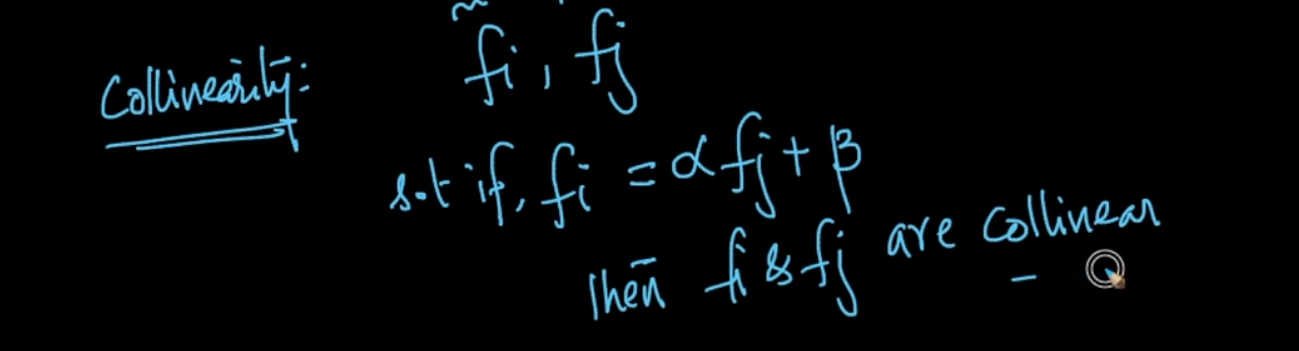 Collinearity: fi, fj
s.t if, fi = αfj + β
Then fi & fj are Collinear